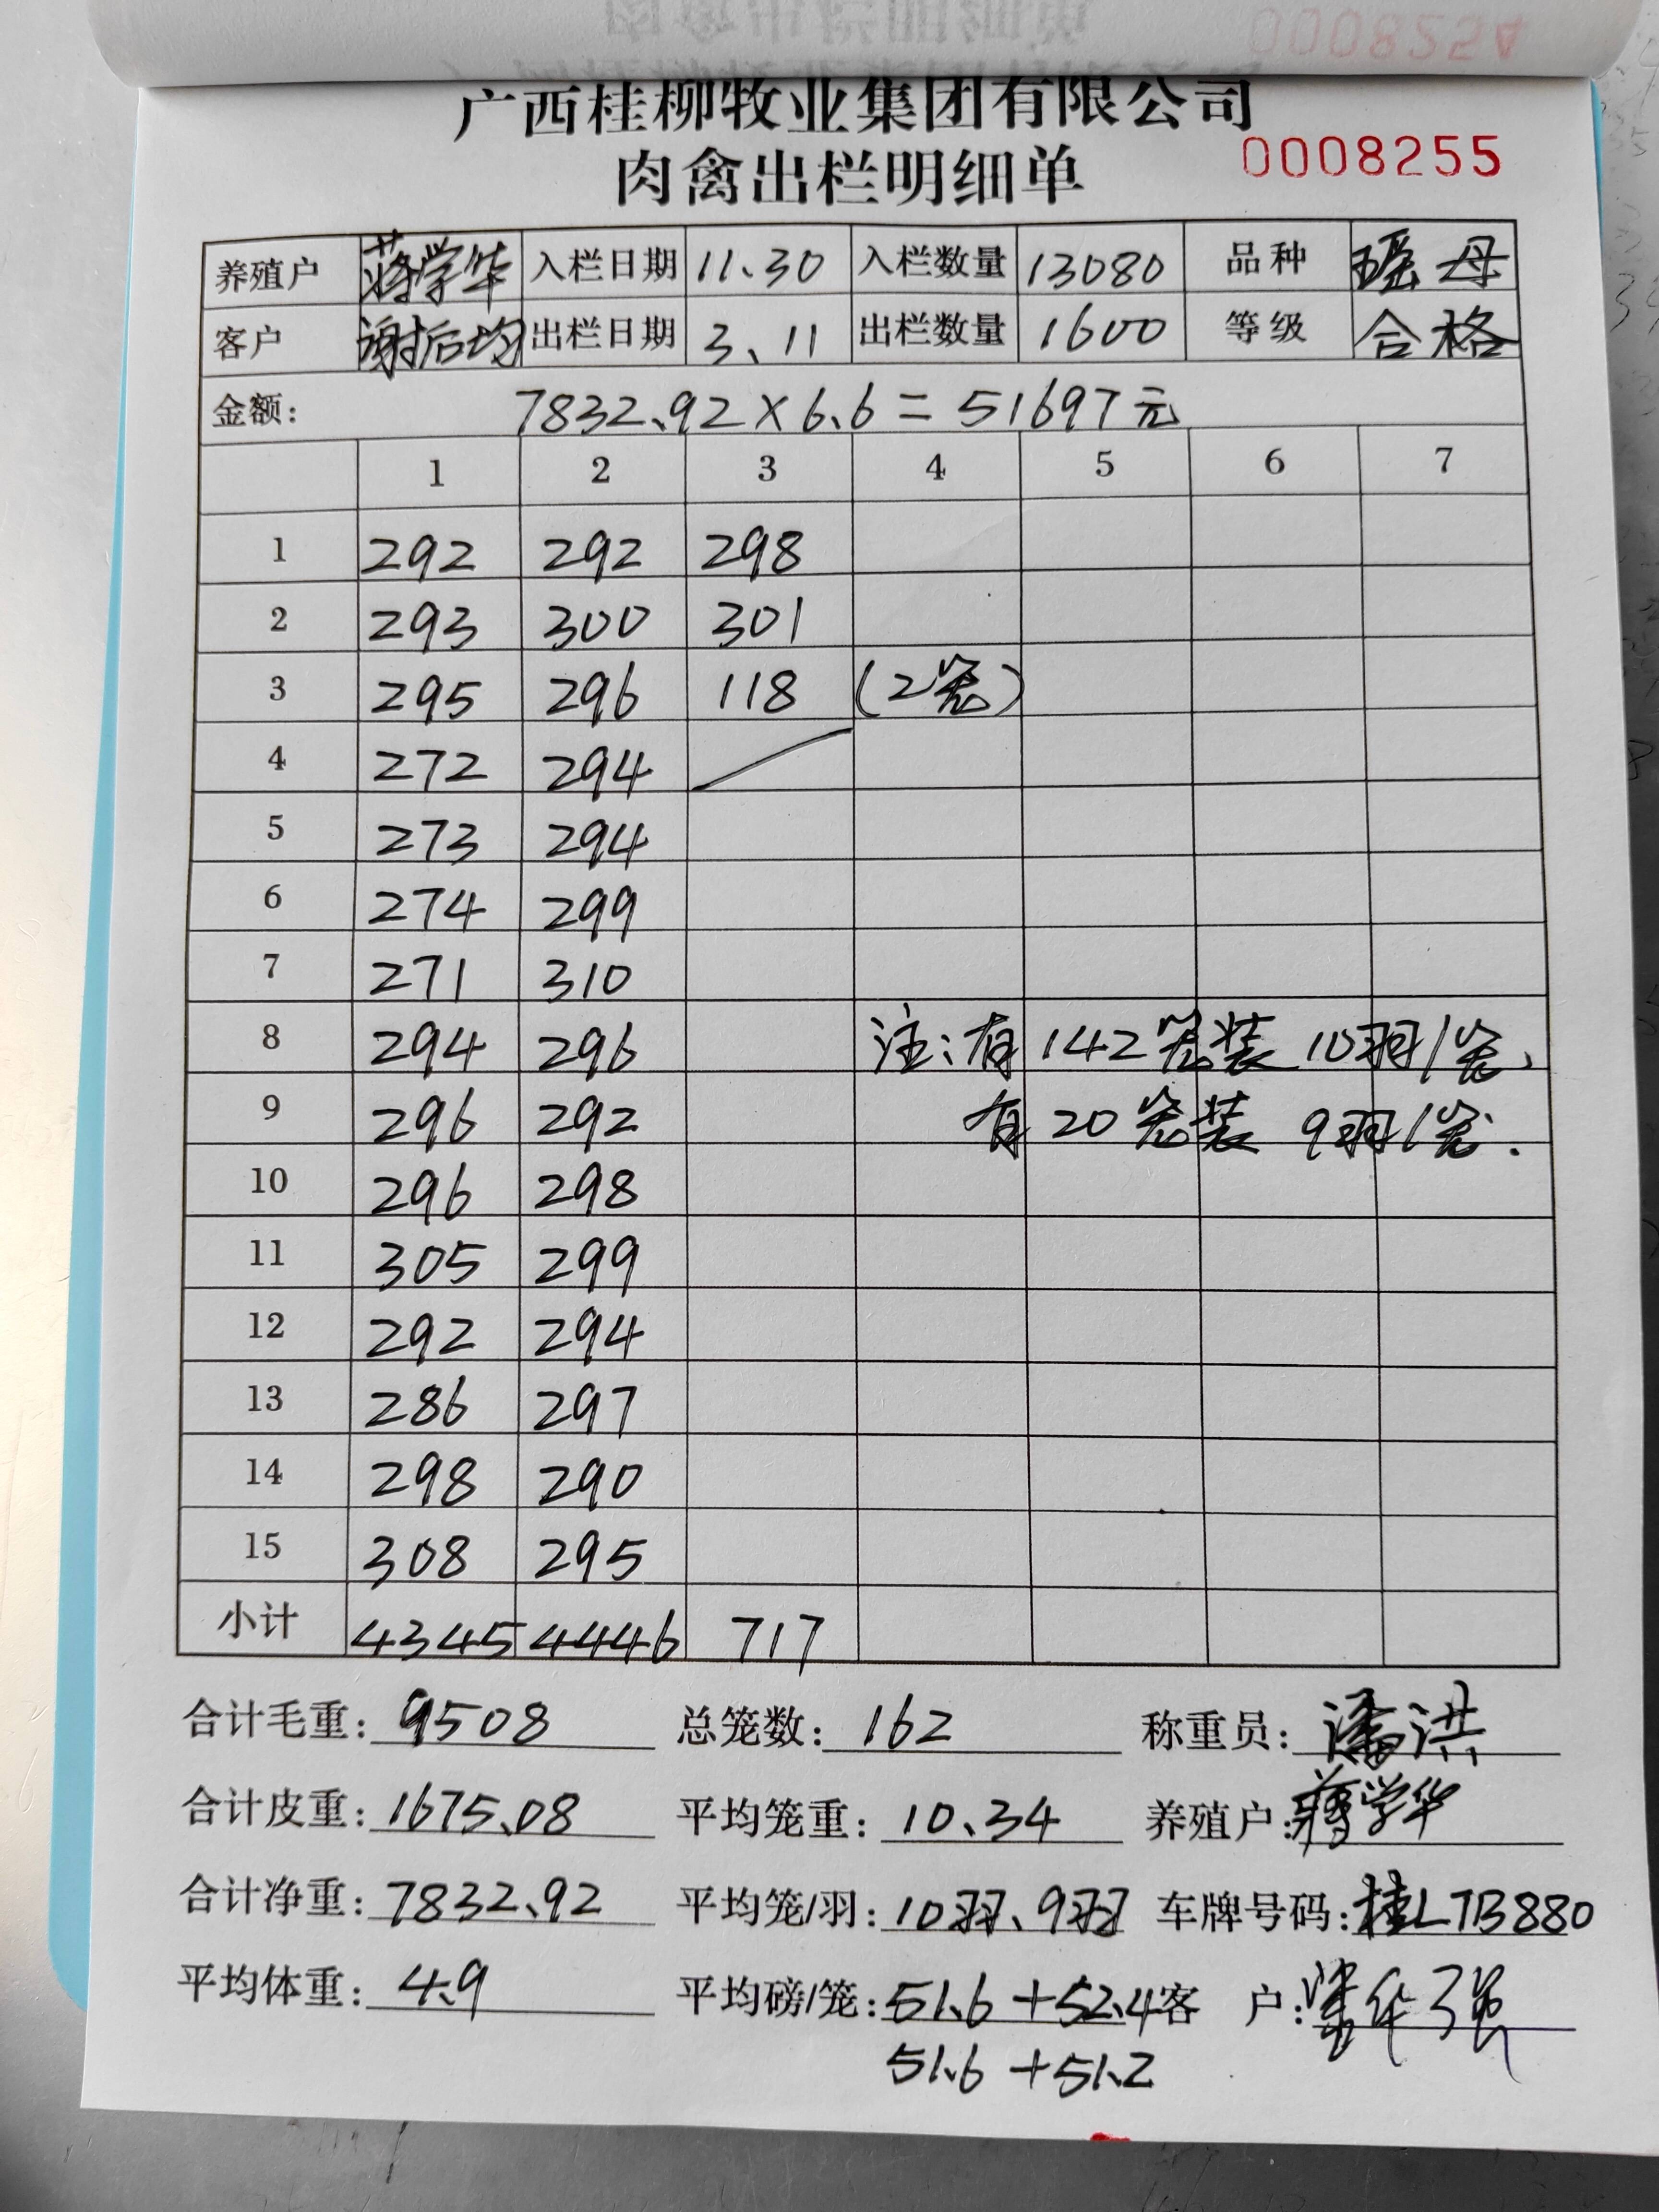 0008254
广西桂柳牧业集团有限公司
肉禽出栏明细单 0008255
养殖户 蒋学华 入栏日期 11.30 入栏数量 13080 品种 瑶母
客户 谢后均 出栏日期 3、11 出栏数量 1600 等级 合格
金额: 7832、92×6、6=51697元
1 2 3 4 5 6 7
1 292 292 298
2 293 300 301
3 295 296 118 (2笼)
4 272 294
5 273 294
6 274 299
7 271 310
8 294 296 注:有142笼装10羽/笼、
9 296 292 有20笼装9羽/笼.
10 296 298
11 305 299
12 292 294
13 286 297
14 298 290
15 308 295
小计 4345 4446 717
合计毛重: 9508 总笼数: 162 称重员: 潘洪
合计皮重: 1675、08 平均笼重: 10、34 养殖户: 蒋学华
合计净重: 7832、92 平均笼/羽: 10羽、9羽 车牌号码: 桂LTB880
平均体重: 4.9 平均磅/笼: 51、6+52、4 客户:
51、6+51、2